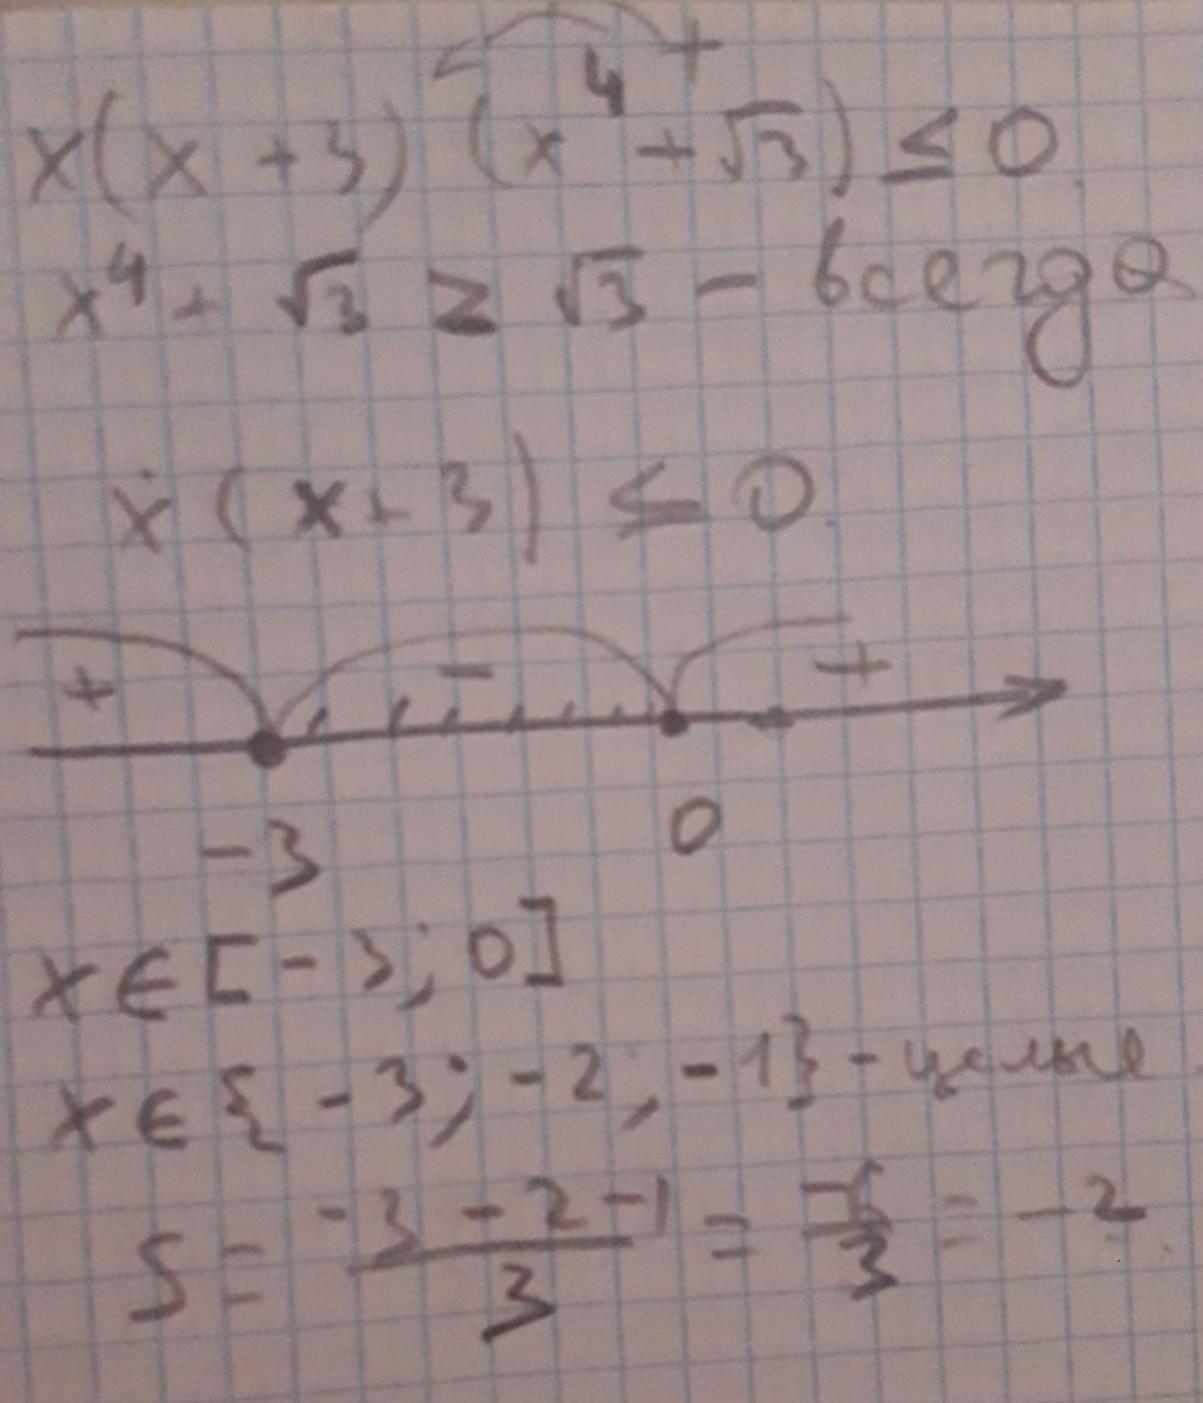 +
x(x+3)(x⁴+√3) ≤ 0
x⁴+√3 ≥ √3 - всегда
x(x+3) ≤ 0
+ - +
-3 0
x∈[-3; 0]
x∈{-3; -2, -1} - целые
S = (-3-2-1)/3 = -6/3 = -2